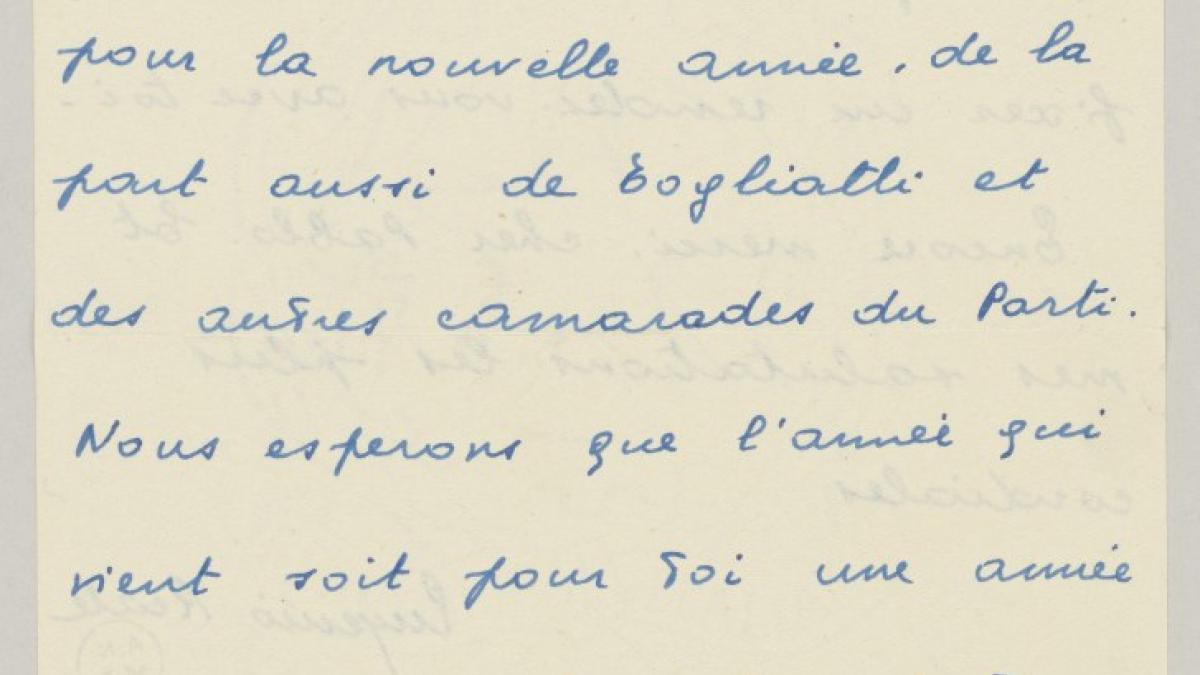 pour la nouvelle année, de la
part aussi de Togliatti et
des autres camarades du Parti.
Nous esperons que l'année qui
vient soit pour Toi une année